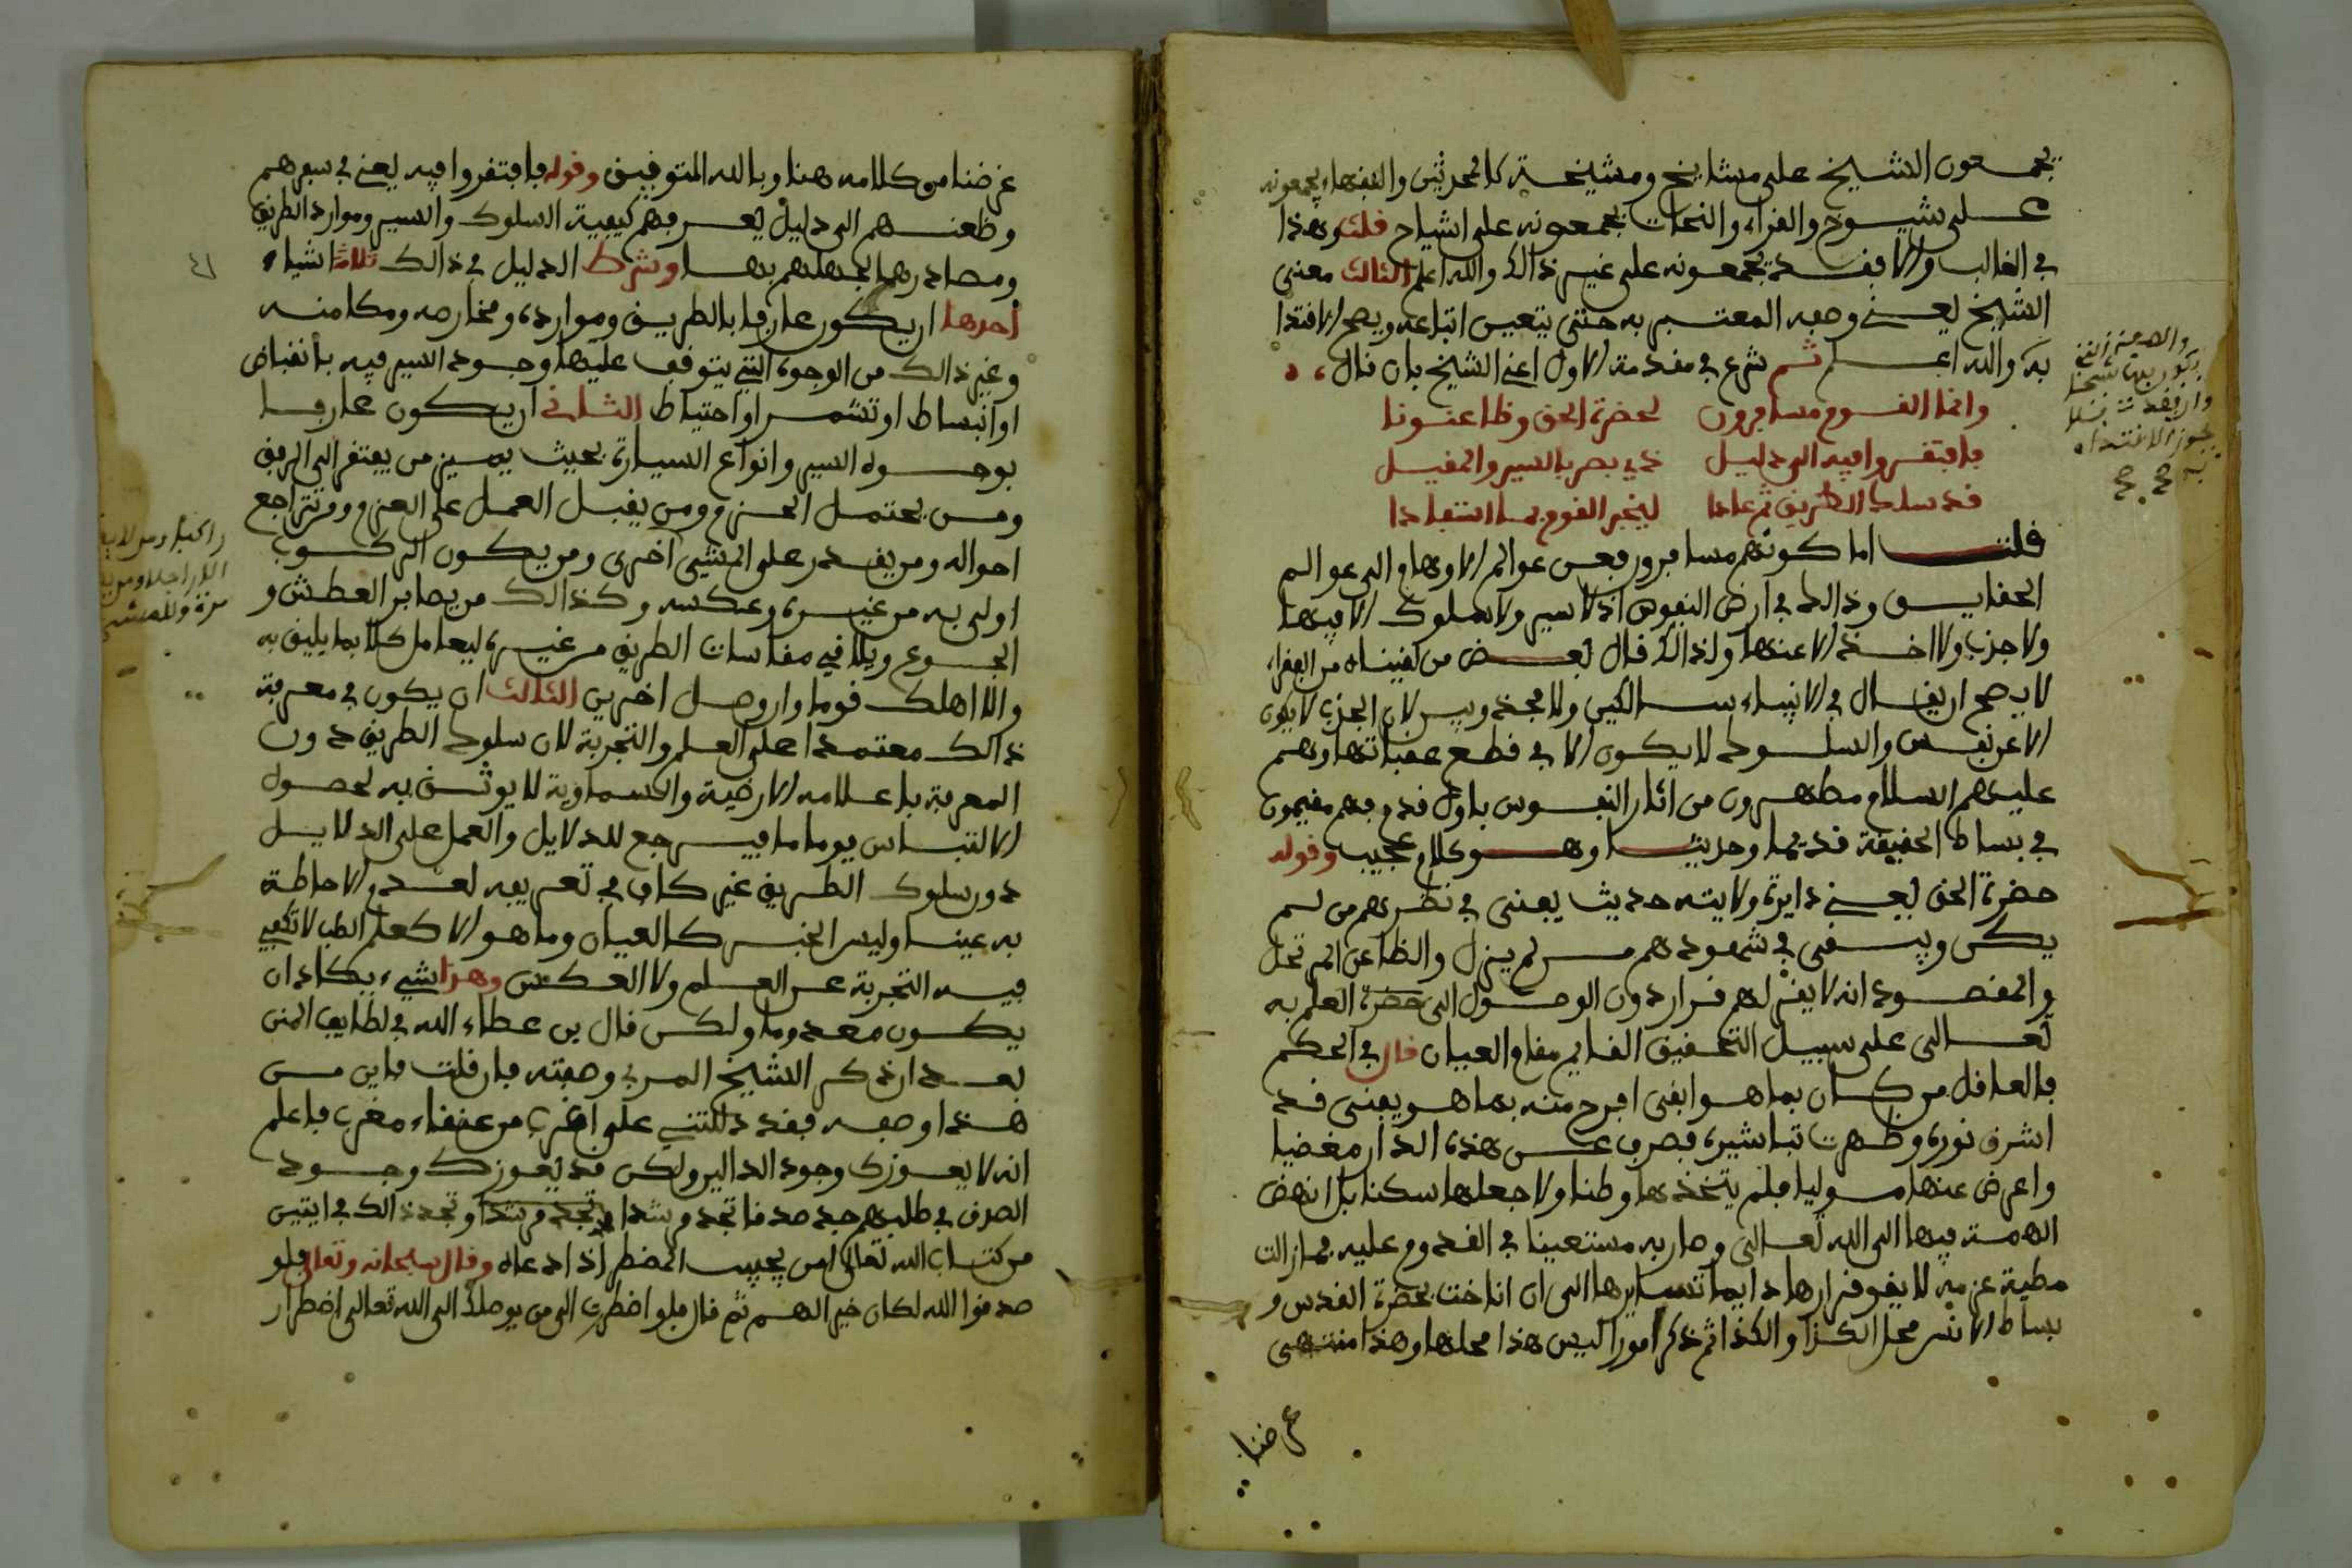 يجمعون الشيخ على مشايخ ومشيخة كالمحدثين والفقهاء يجمعونه
على شيوخ والقراء والنحات يجمعونه على اشياخ قلت وهذا
في الغالب والا فقد يجمعونه على غير ذالك والله اعلم الثالث معنى
الشيخ يعني وصفه المعتبر به حتى يتعين اتباعه ويصح الاقتدا
به والله اعلم ثم شرع في مقدمة الاول اعني الشيخ بان قال
وانما القوم مسافرون لحضرة الحق وظاعنونا
فافتقروا فيه الى دليل ذي بصر بالسير والمقيل
قد سلك الطريق ثم عادا ليخبر القوم بما استفادا
قلت اما كونهم مسافرون فمن عوالم الاوهام الى عوالم
الحقايق وذالك في ارض النفوس اذ لا سير ولا سلوك الا فيها
ولا جذب ولا اخذ الا عنها ولذالك قال بعض من لقيناه من الفقراء
لا يصح ان يقال في الانبياء سالكين ولا مجذوبين لان الجذب لا يكون
الا عن نفس والسلوك لا يكون الا في قطع عقباتها وهم
عليهم السلام مطهرون من اثار النفوس باول قدم فهم مقيمون
في بساط الحقيقة قديما وحديثا وهو كلام عجيب وقوله
حضرة الحق يعني دايرة ولايته حديث يفنى في نظرهم من لم
يكن ويبقى في شهودهم من لم يزل والظاعن المرتحل
والمقصود انه لا يقر لهم قرار دون الوصول الى حضرة العلم به
تعالى على سبيل التحقيق القايم مقام العيان قال في الحكم
فالعاقل من كان بما هو ابقى افرح منه بما هو يفنى قد
اشرق نوره وظهرت تباشيره فصرف عن هذه الدار مغضيا
واعرض عنها موليا فلم يتخذها وطنا ولا جعلها سكنا بل انهض
الهمة فيها الى الله تعالى وصار به مستعينا في القدوم عليه فما زالت
مطية عزمه لا يقر قرارها دايما تسايرها الى ان اناخت بحضرة القدس و
بساط الانس محل الكذا والكذا ثم ذكر امورا ليس هذا محلها وهذا منتهى
غرضنا
بكون شيخا
يجوز الاقتداء
به
غرضنا من كلامه هنا وبالله التوفيق وقوله فافتقروا فيه يعني في سفرهم
وظعنهم الى دليل يعرفهم كيفية السلوك والسير وموارد الطريق
ومصادرها لجهلهم بها وشرط الدليل في ذالك ثلاثة اشياء
احدها ان يكون عارفا بالطريق وموارده ومخارمه ومكامنه
وغير ذالك من الوجوه التي يتوقف عليها وجود السير فيه بانقباض
او انبساط او تشمر او احتياط الثاني ان يكون عارفا
بوجوه السير وانواع السيارة بحيث يميز من يفتقر الى الرفق
ومن يحتمل الحزم ومن يقبل العمل على العزم ومن تتراجع
احواله ومن يقدر على المشي اخرى ومن يكون الركوب
اولى به من غيره وعكسه وكذالك من يصابر العطش و
الجوع ويلاقي مقاسات الطريق من غيره ليعامل كلا بما يليق به
والا اهلك قوما وان وصل اخرين الثالث ان يكون في معرفة
ذالك معتمدا على العلم والتجربة لان سلوك الطريق دون
المعرفة باعلامه الارضية والسماوية لا يوثق به لحصول
الالتباس يوما ما فيرجع للدلايل والعمل على الدلايل
دون سلوك الطريق غير كاف في تعريفه لعدم الاحاطة
به عينا وليس الخبر كالعيان وما هو الا كعلم الطب لا تكفي
فيه التجربة عن العلم ولا العكس وهذا شيء يكاد ان
يكون معدوما ولكن قال بن عطاء الله في لطايف المنن
بعد ان ذكر الشيخ المربي وصفته فان قلت فاين من
هذا وصفه فقد دللتني على اغرب من عنقاء مغرب فاعلم
انه لا يعوزك وجود الدالين ولكن قد يعوزك وجود
الصدق في طلبهم جد صدقا تجد مرشدا تجد مرشدا وتجد ذالك في ايتين
من كتاب الله تعالى امن يجيب المضطر اذا دعاه وقال سبحانه وتعالى فلو
صدقوا الله لكان خيرا لهم ثم قال فلو اضطررت الى من يوصلك الى الله تعالى اضطرار